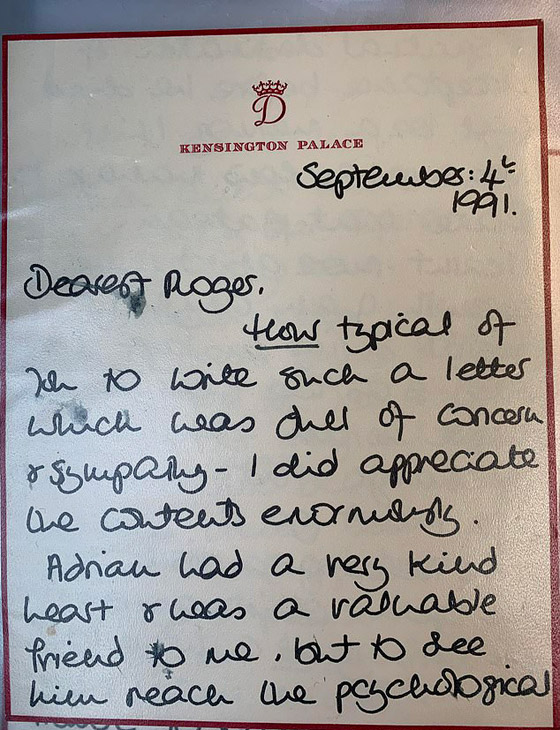 D
KENSINGTON PALACE
September: 4th
1991.
Dearest Roger,
How typical of
you to write such a letter
which was full of concern
& sympathy - I did appreciate
the contents enormously.
Adrian had a very kind
heart & was a valuable
friend to me, but to see
him reach the psychological